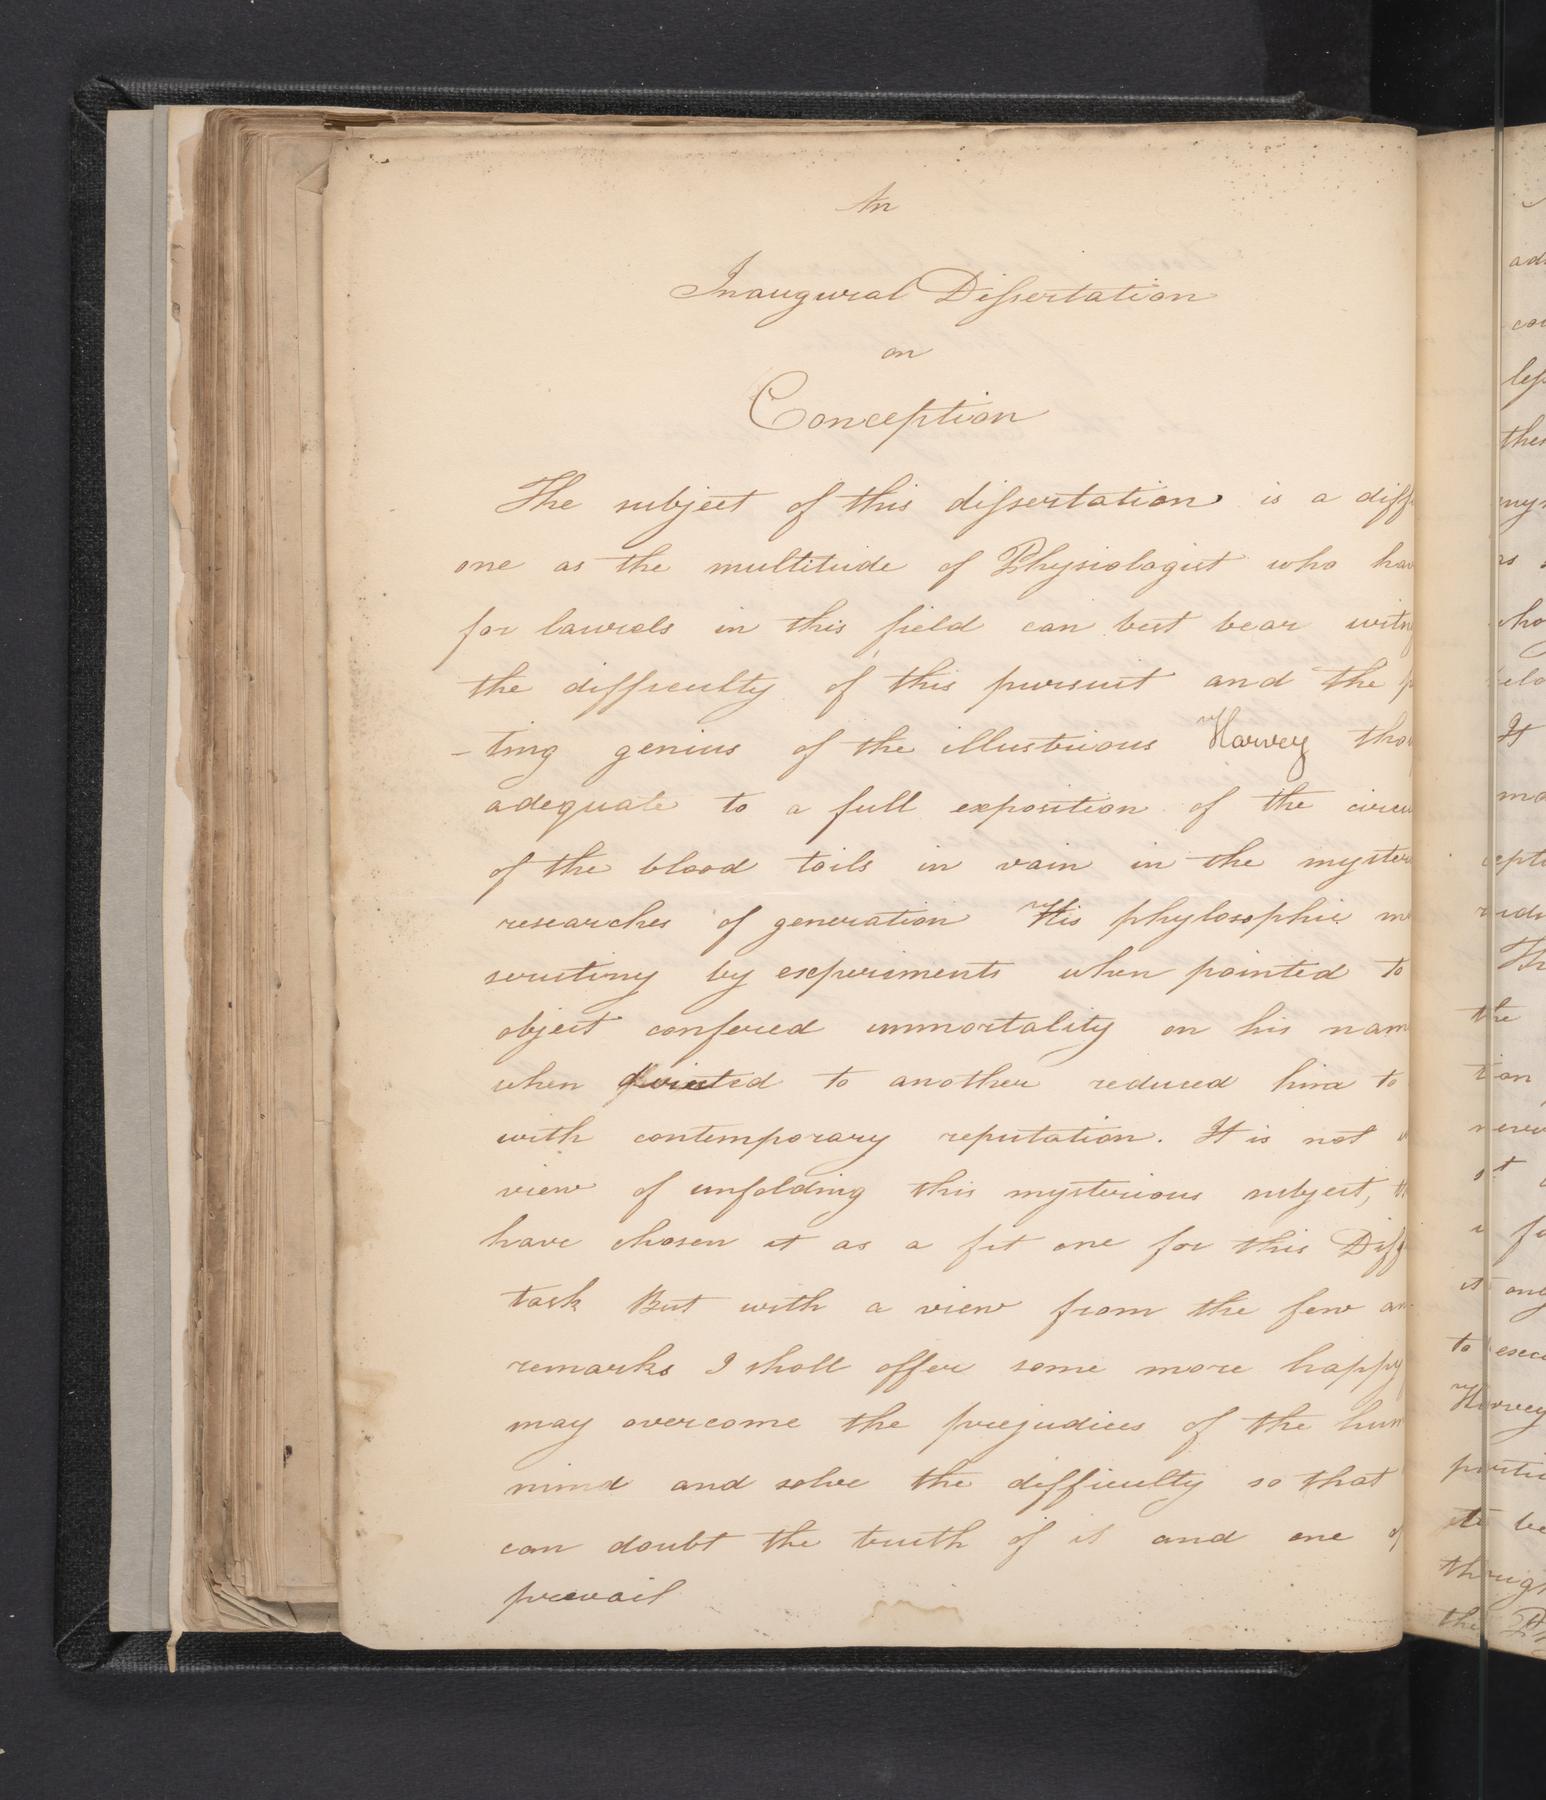 An
Inaugural Dissertation
on
Conception
The subject of this dissertation is a diff
one as the multitude of Physiologist who hav
for laurels in this field can best bear witn
the difficulty of this pursuit and the
-ting genius of the illustrious Harvey thou
adequate to a full exposition of the circu
of the blood toils in vain in the myster
researches of generation His phylosophic
scrutiny by experiments when pointed to
object confered immortality on his nam
when pointed to another reduced him to
with contemporary reputation. It is not
view of unfolding this mysterious subject,
have chosen it as a fit one for this Diss
task But with a view from the few an
remarks I shall offer some more happy
may overcome the prejudices of the hum
mind and solve the difficulty so that
can doubt the truth of it and one of
prevail
It
the
Harvey
to
the